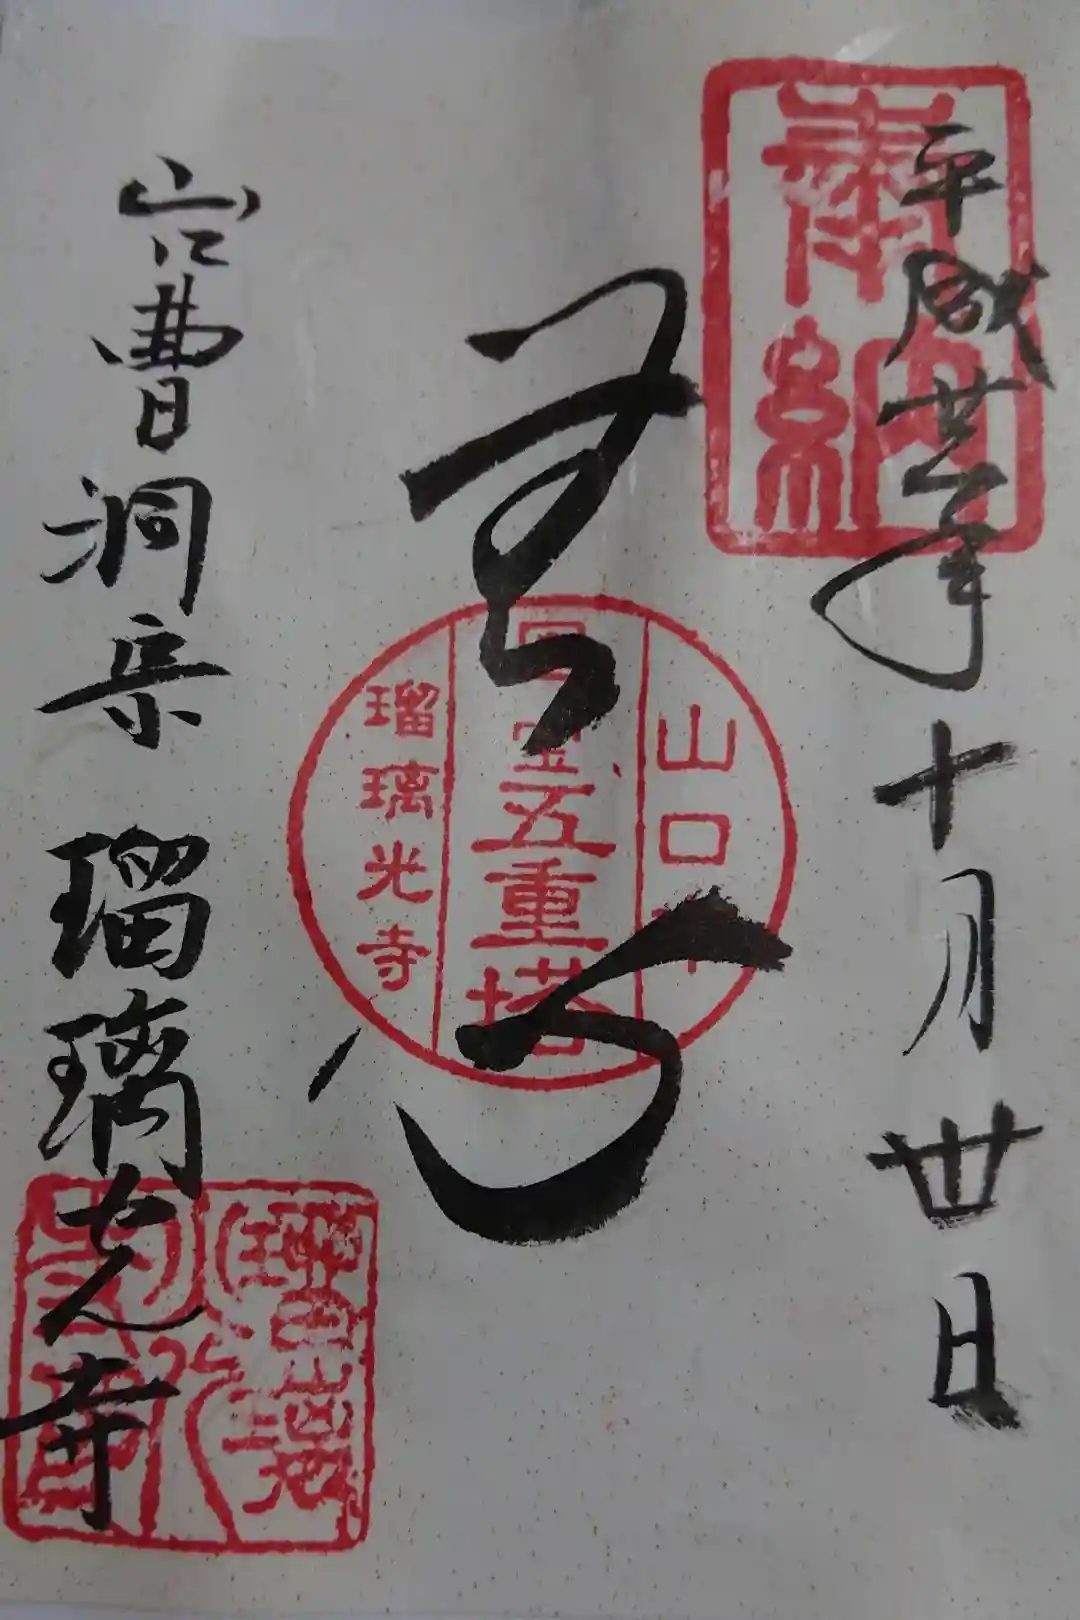 奉納
平成丗年十月丗日
心
山口市
国宝五重塔
瑠璃光寺
山口曹洞宗 瑠璃光寺